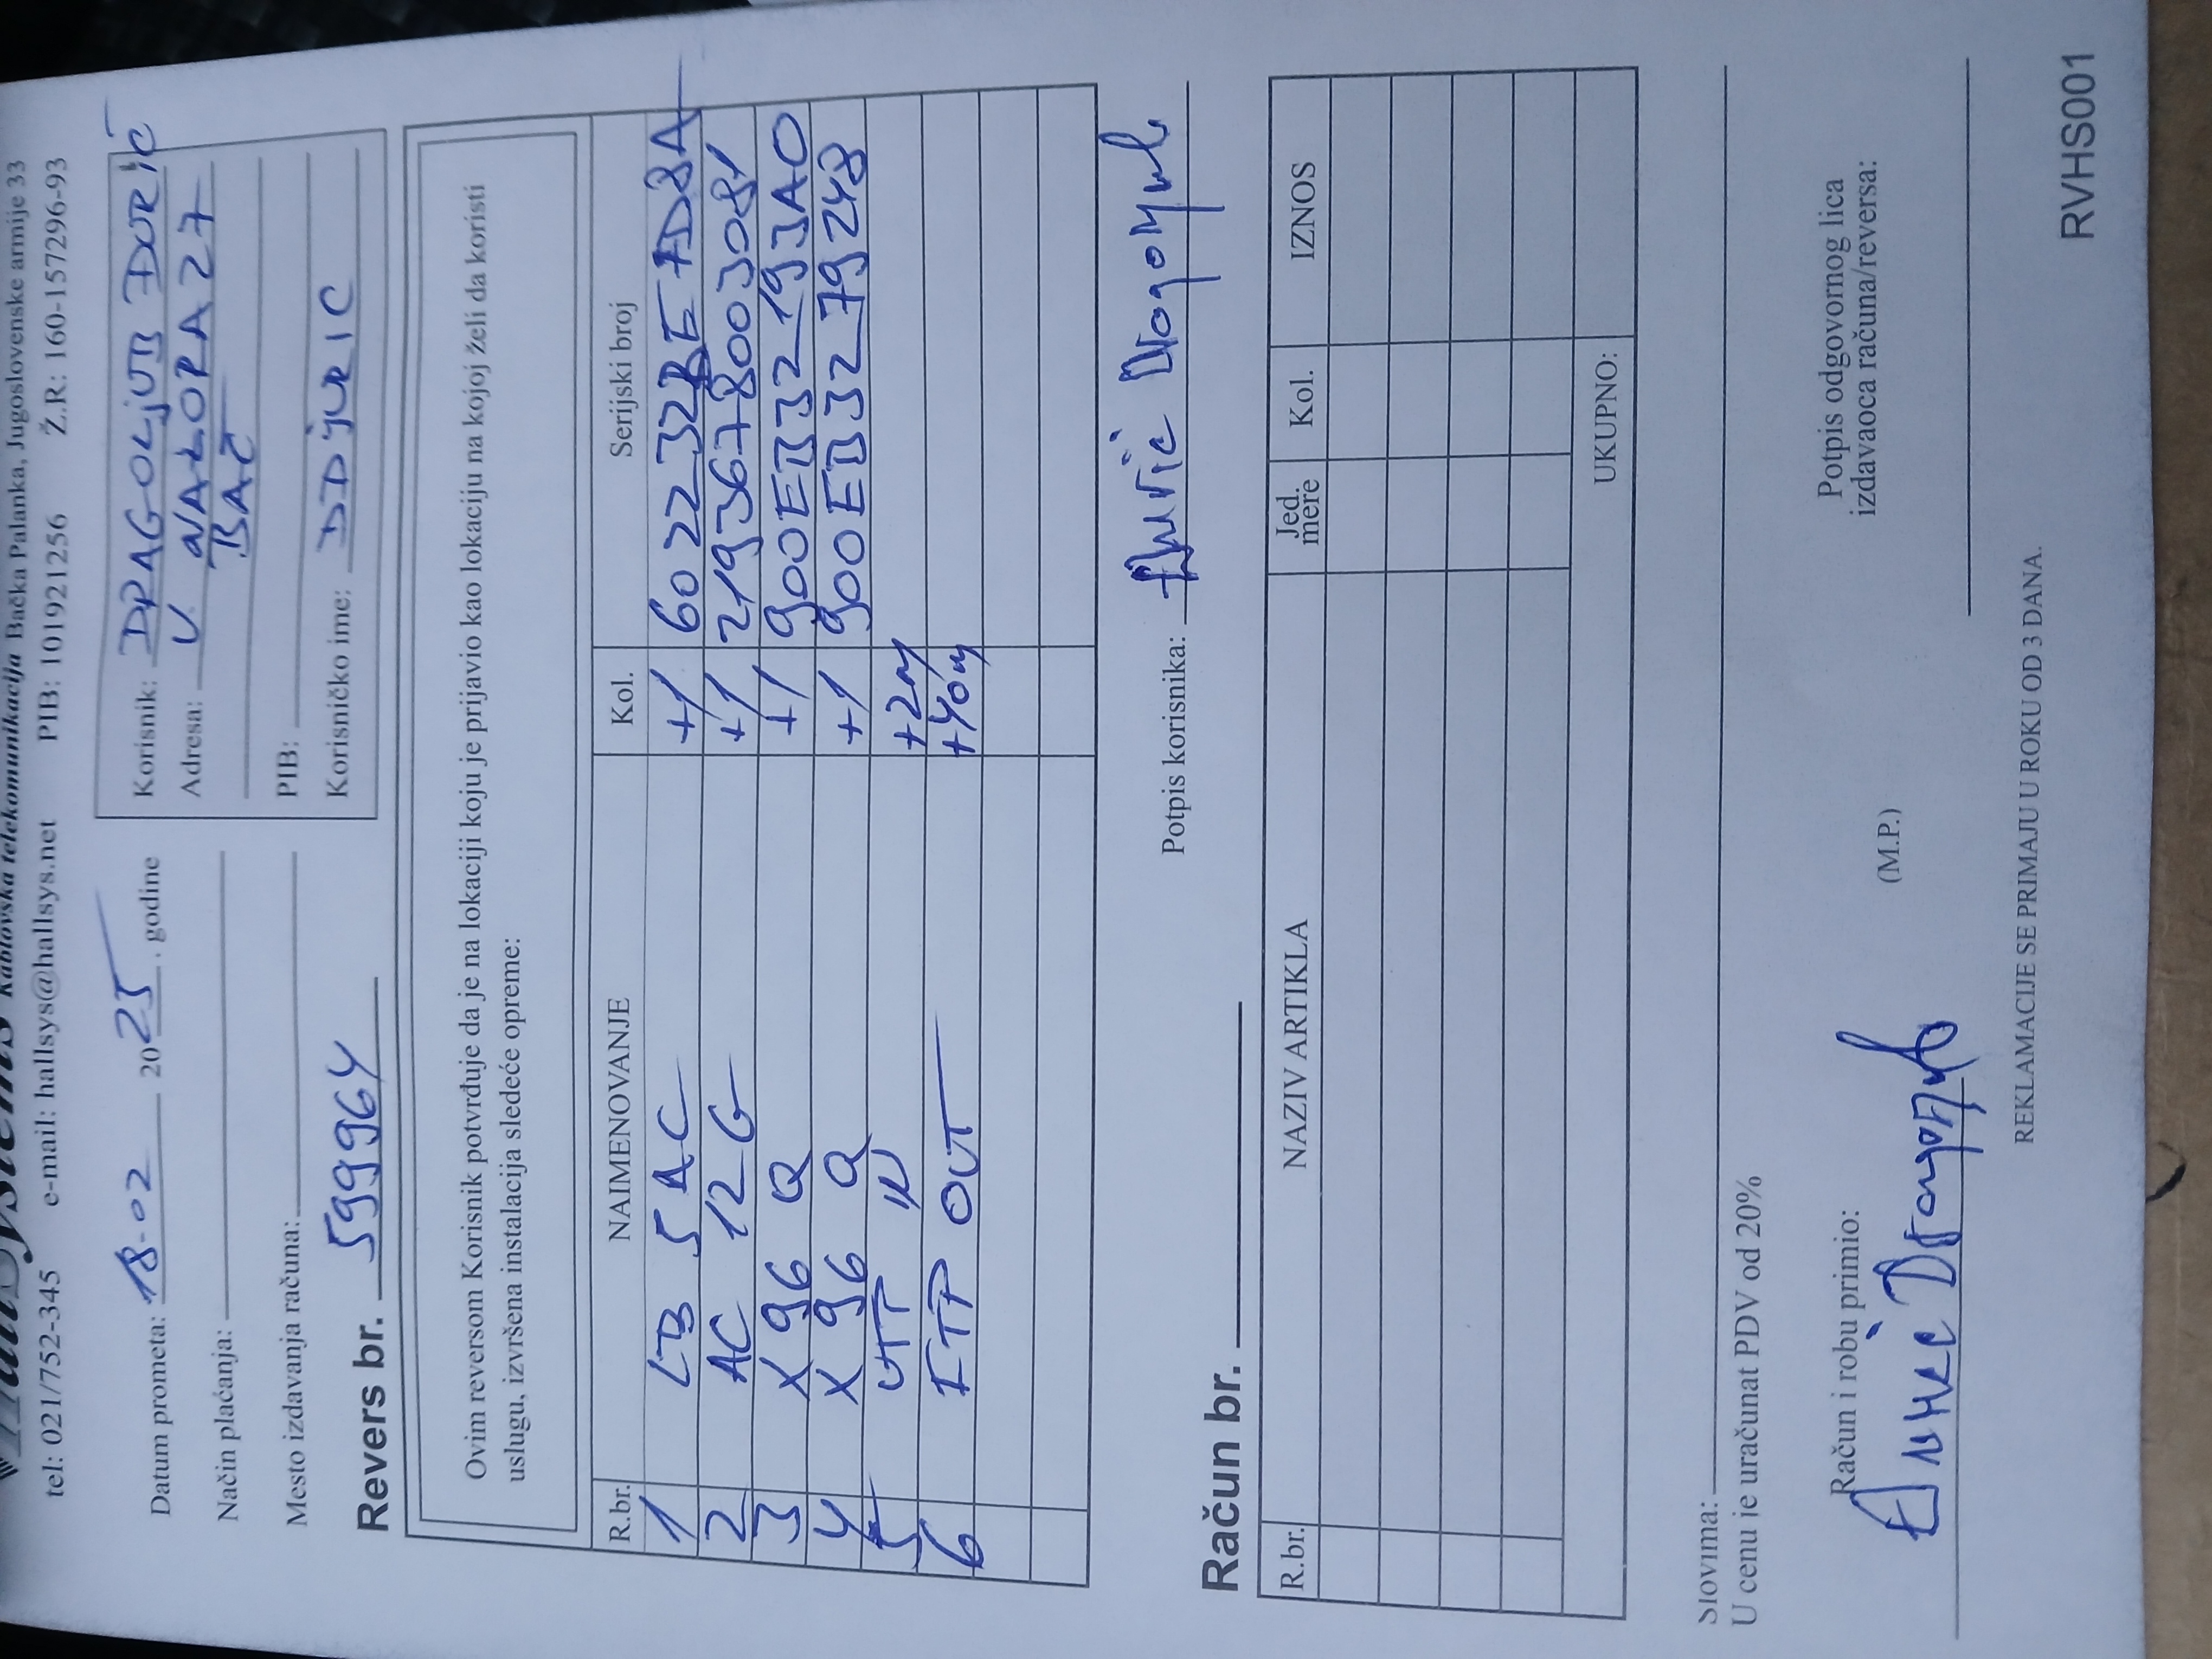 HallSystems kablovska telekomunikacija Bačka Palanka, Jugoslovenske armije 33
tel: 021/752-345 e-mail: hallsys@hallsys.net PIB: 101921256 Ž.R: 160-157296-93
Datum prometa: 18-02 2025. godine
Način plaćanja:
Mesto izdavanja računa:
Korisnik: DRAGOLjUB ĐURIĆ
Adresa: V NAZORA 27
BAČ
PIB:
Korisničko ime: DDjURIC
Revers br. 599964
Ovim reversom Korisnik potvrđuje da je na lokaciji koju je prijavio kao lokaciju na kojoj želi da koristi
uslugu, izvršena instalacija sledeće opreme:
R.br. NAIMENOVANJE Kol. Serijski broj
1 LB 5 AC +1 602232BE7D8A
2 AC 12 G +1 2193678003081
3 X 96 Q +1 900EB32193A0
4 X 96 Q +1 900EB3279248
5 UTP IN +2m
6 FTP OUT +40m
Potpis korisnika:
Račun br.
R.br. NAZIV ARTIKLA Jed. mere Kol. IZNOS
UKUPNO:
Slovima:
U cenu je uračunat PDV od 20%
Račun i robu primio:
(M.P.)
Potpis odgovornog lica
izdavaoca računa/reversa:
REKLAMACIJE SE PRIMAJU U ROKU OD 3 DANA.
RVHS001